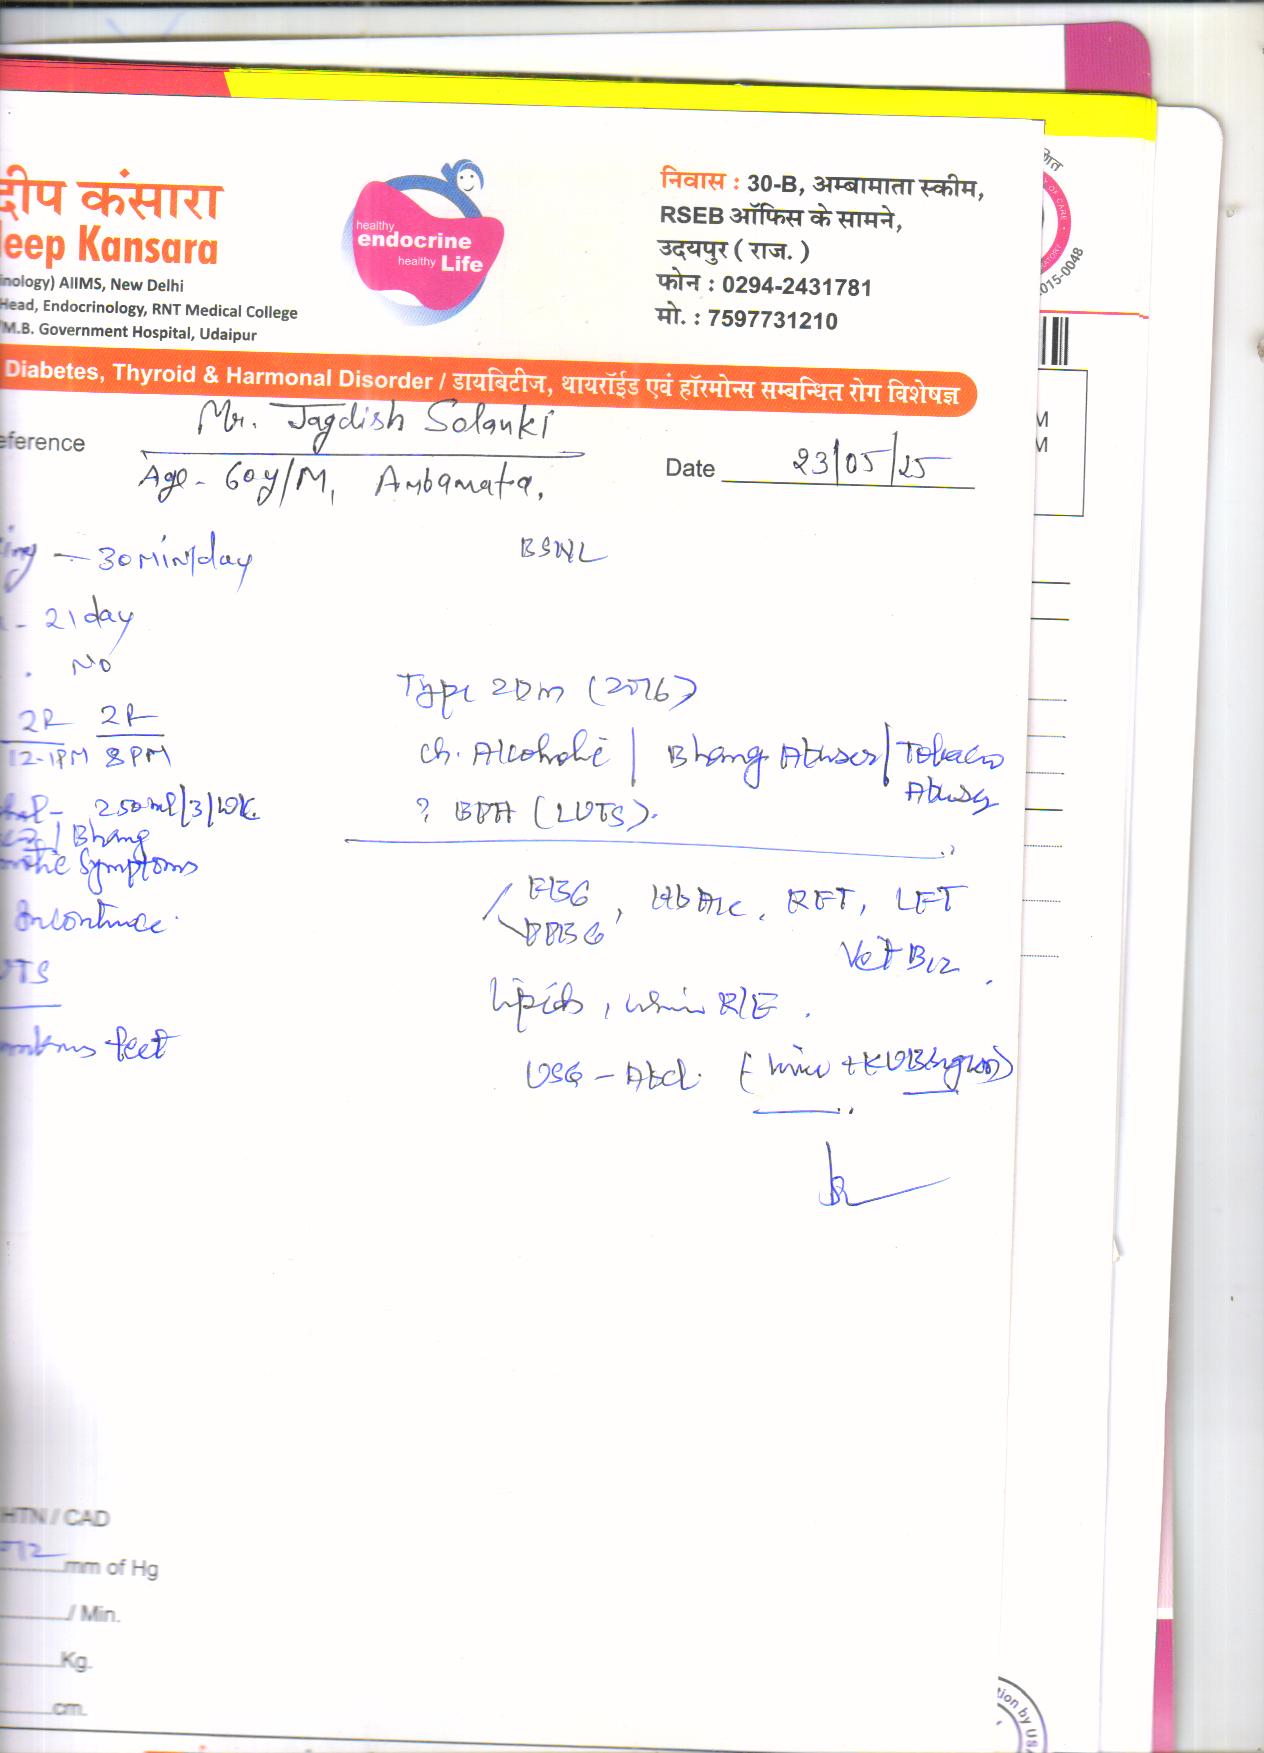 दीप कंसारा
deep Kansara
nology) AIIMS, New Delhi
Head, Endocrinology, RNT Medical College
M.B. Government Hospital, Udaipur
healthy
endocrine
healthy Life
निवास : 30-B, अम्बामाता स्कीम,
RSEB ऑफिस के सामने,
उदयपुर ( राज. )
फोन : 0294-2431781
मो. : 7597731210
015-0048
Diabetes, Thyroid & Harmonal Disorder / डायबिटीज, थायरॉईड एवं हॉरमोन्स सम्बन्धित रोग विशेषज्ञ
eference
Mr. Jagdish Solanki
Age - 60y/M, Ambamata,
Date 23/05/25
M
M
ing - 30 Min/day
BSNL
- 21 day
. No
2R 2R
12-1PM 8PM
Type 2 Dm (2016)
Ch. Alcoholic | Bhang Abuser / Tobacco
Abuser
? BPH (LUTS).
hol - 250ml/3/wk.
/ Bhang
Symptoms
Incontince.
UTS
feet
FBG
PPBG
, HbA1c, RFT, LFT
Vit B12
lipids, urine R/E.
USG - Abd. (liver + KUB region)
HTN / CAD
mm of Hg
/ Min.
Kg.
cm.
tion by USA